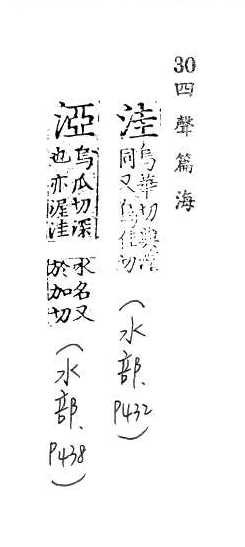 30四聲篇海
洼烏華切與窪同又烏佳切(水部、P432)
㳌烏瓜切深也亦渥洼水名又於加切(水部、P438)